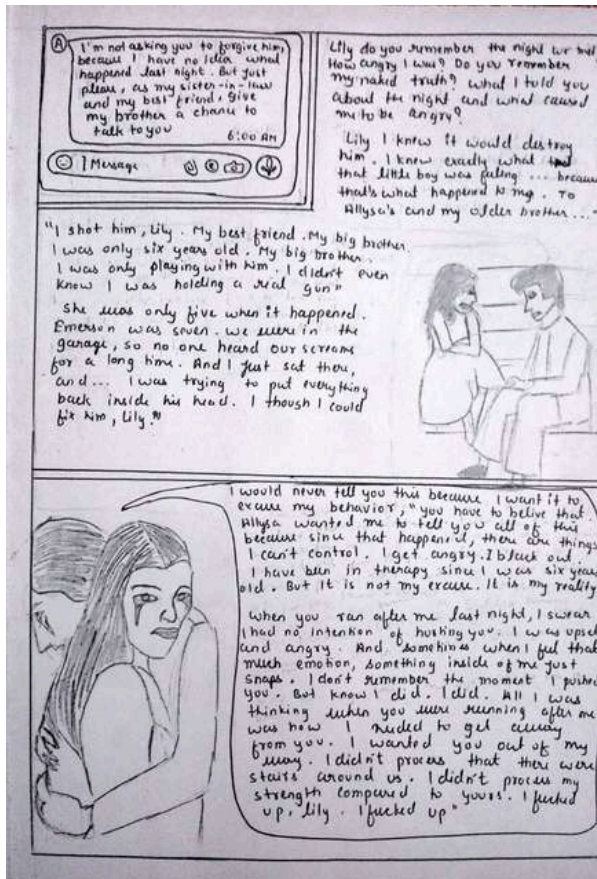 A
I'm not asking you to forgive him,
because I have no idea what
happened last night. But just
please, as my sister-in-law
and my best friend, give
my brother a chance to
talk to you
6:00 AM
Message
Lily do you remember the night we met?
How angry I was? Do you remember
my naked truth? What I told you
about the night and what caused
me to be angry?
Lily I knew it would destroy
him. I knew exactly what
that little boy was feling ... because
that's what happened to my. To
Allysa's and my older brother..."
"I shot him, Lily. My best friend. My big brother.
I was only six years old. My big brother.
I was only playing with him. I didn't even
know I was holding a real gun"
She was only five when it happened.
Emerson was seven. We were in the
garage, so no one heard our screams
for a long time. And I just sat there,
and... I was trying to put everything
back inside his head. I though I could
fix him, Lily."
I would never tell you this because I want it to
excuse my behavior, "you have to belive that.
Allysa wanted me to tell you all of this
because since that happened, there are things
I can't control. I get angry. I black out.
I have been in therapy since I was six years
old. But it is not my excuse. It is my reality
When you ran after me last night, I swear
I had no intention of hurting you. I was upset
and angry. And sometimes when I feel that
much emotion, something inside of me just
snaps. I don't remember the moment I pushed
you. But know I did. I did. All I was
thinking when you were running after me
was how I needed to get away
from you. I wanted you out of my
way. I didn't process that there were
stairs around us. I didn't process my
strength compared to yours. I fucked
up, Lily. I fucked up"